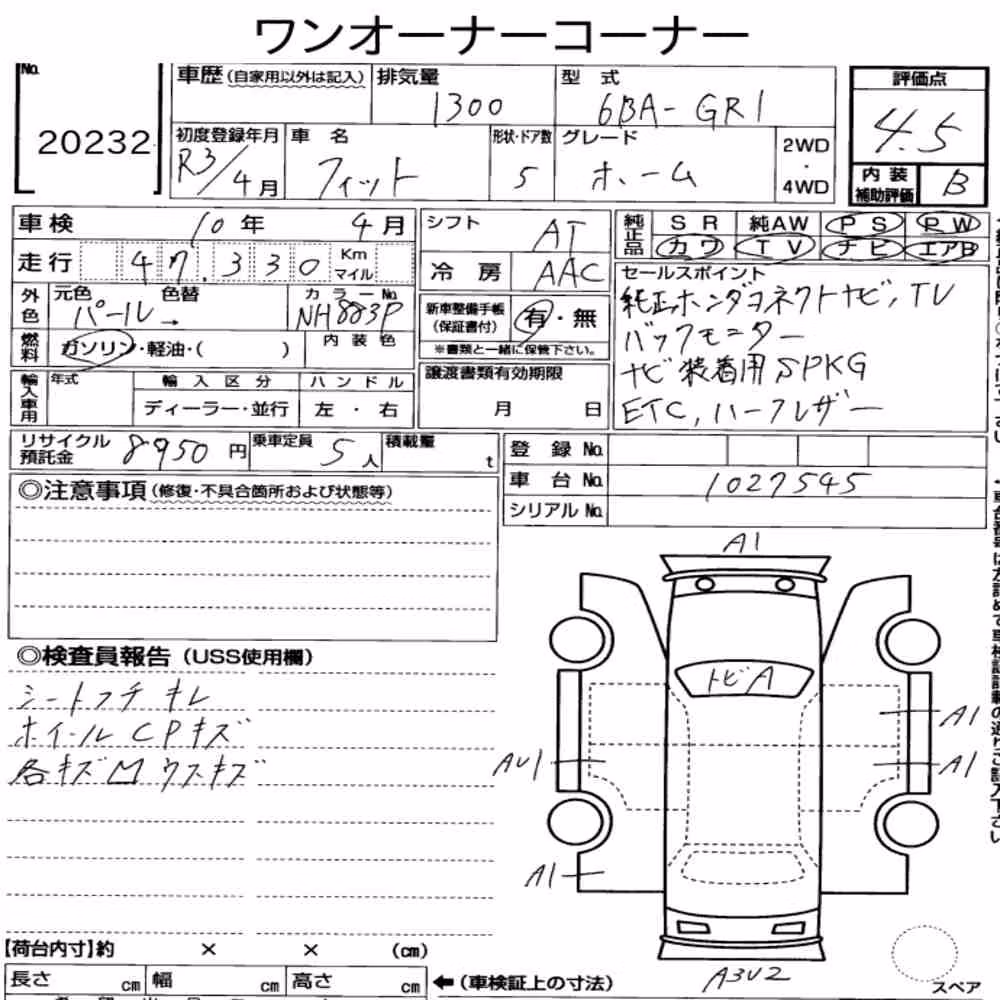 ワンオーナーコーナー
No. 20232
車歴(自家用以外は記入) 排気量 1300 型式 6BA-GR1 評価点 4.5
初度登録年月 R3/4月 車名 フィット 形状・ドア数 5 グレード ホーム 2WD・4WD 内装補助評価 B
車検 10年 4月 シフト AT 純正品 SR 純AW PS PW
カワ TV ナビ エアB
走行 47.330 Km マイル 冷房 AAC
外色 元色 パール→ 色替 カラーNo. NH883P
新車整備手帳(保証書付) 有・無
※書類と一緒に保管下さい。
燃料 ガソリン・軽油・( ) 内装色
セールスポイント
純正ホンダコネクトナビ, TV
バックモニター
ナビ装着用SPKG
ETC, ハーフレザー
輸入車用 年式 輸入区分 ハンドル
ディーラー・並行 左・右
譲渡書類有効期限
月 日
リサイクル預託金 8950円 乗車定員 5人 積載量 t
登録No.
車台No. 1027545
シリアルNo.
◎注意事項(修復・不具合箇所および状態等)
◎検査員報告(USS使用欄)
シートフチキレ
ホイールCPキズ
各キズMウスキズ
A1
トビA
A1
A1
AU1
A1
A3U2
スペア
【荷台内寸】約 × × (cm)
長さ cm 幅 cm 高さ cm ←(車検証上の寸法)